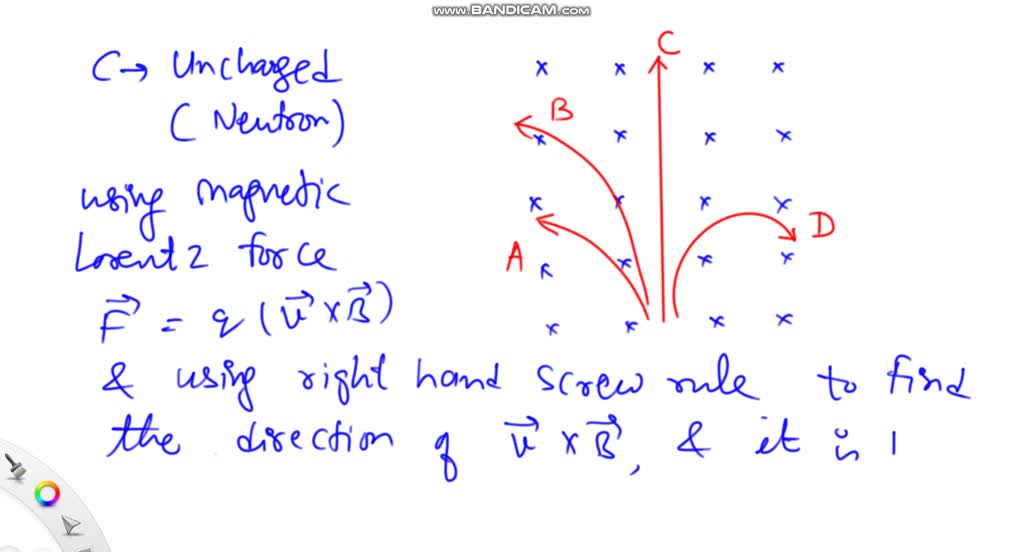 www.BANDICAM.com
C→ Uncharged
(Neutron)
using magnetic
Lorentz force
F⃗ = q(v⃗ x B⃗)
& using right hand screw rule to find
the direction of v⃗ x B⃗, & it is
C
B
A
D